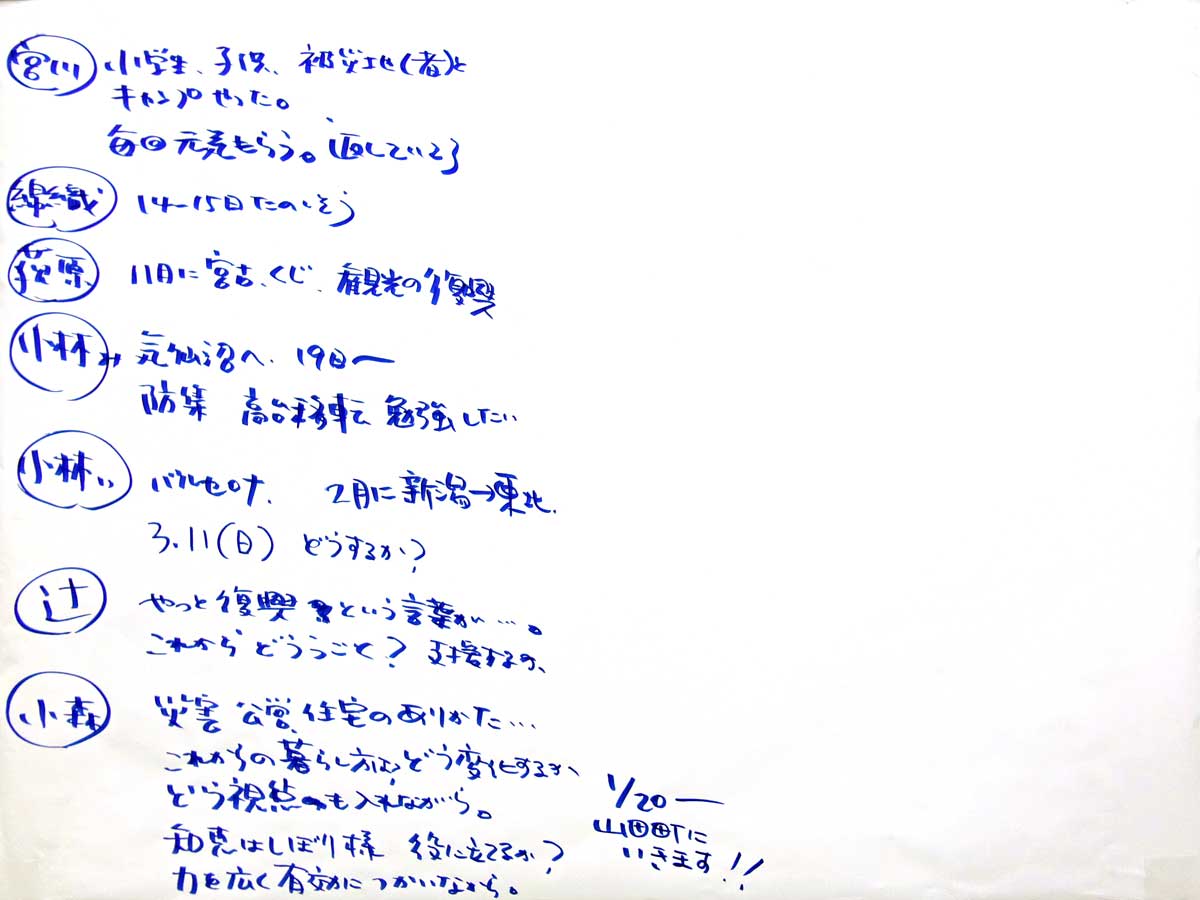 宮川 小学生、子供、被災地(者)と
キャンプやった。
毎回元気もらう。返していく
錦織 14-15日たのしそう
荻原 11月に宮古、くじ、観光の復興
小林み 気仙沼へ. 19日〜
防集 高台移転 勉強したい
小林い バルセロナ. 2月に新潟→東北.
3.11(日) どうするか?
辻 やっと復興という言葉が…。
これからどううごく? 支援するの、
小森 災害公営住宅のありかた…
これからの暮らし方はどう変化するか、
どう視点も入れながら。
知恵はしぼり様 役に立てるか?
力を広く有効につかいながら。
1/20ー
山田町に
いきます!!